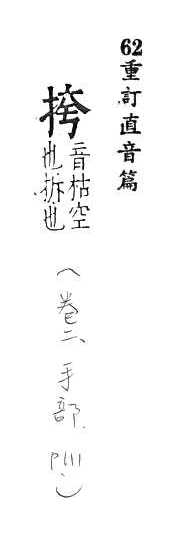 62重訂直音篇
挎音枯空也拆也
(卷二、手部、P111)